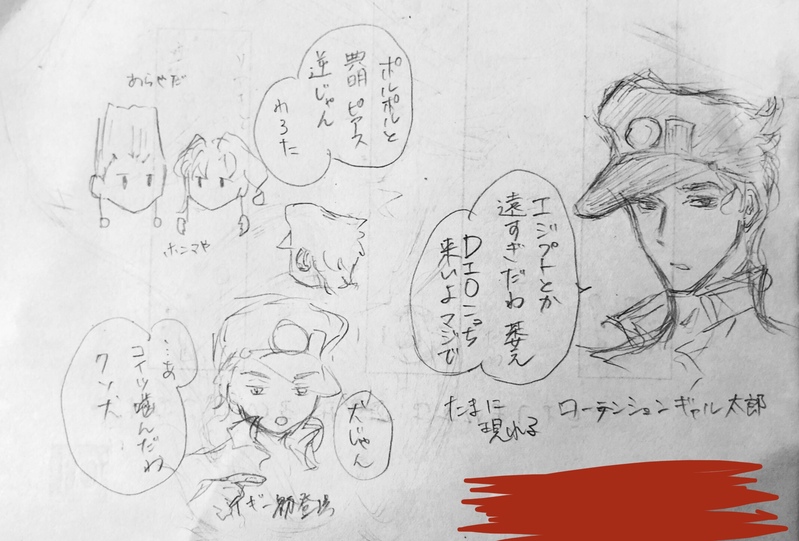 ポルポルと
典明 ピアス
逆じゃん
わろた
あらやだ
ホンマや
エジプトとか
遠すぎだわ 萎え
DIOこっち
来いよ マジで
たまに
現れる
ローテンションギャル太郎
犬じゃん
…あ
コイツ噛んだわ
クソ犬
イギー初登場